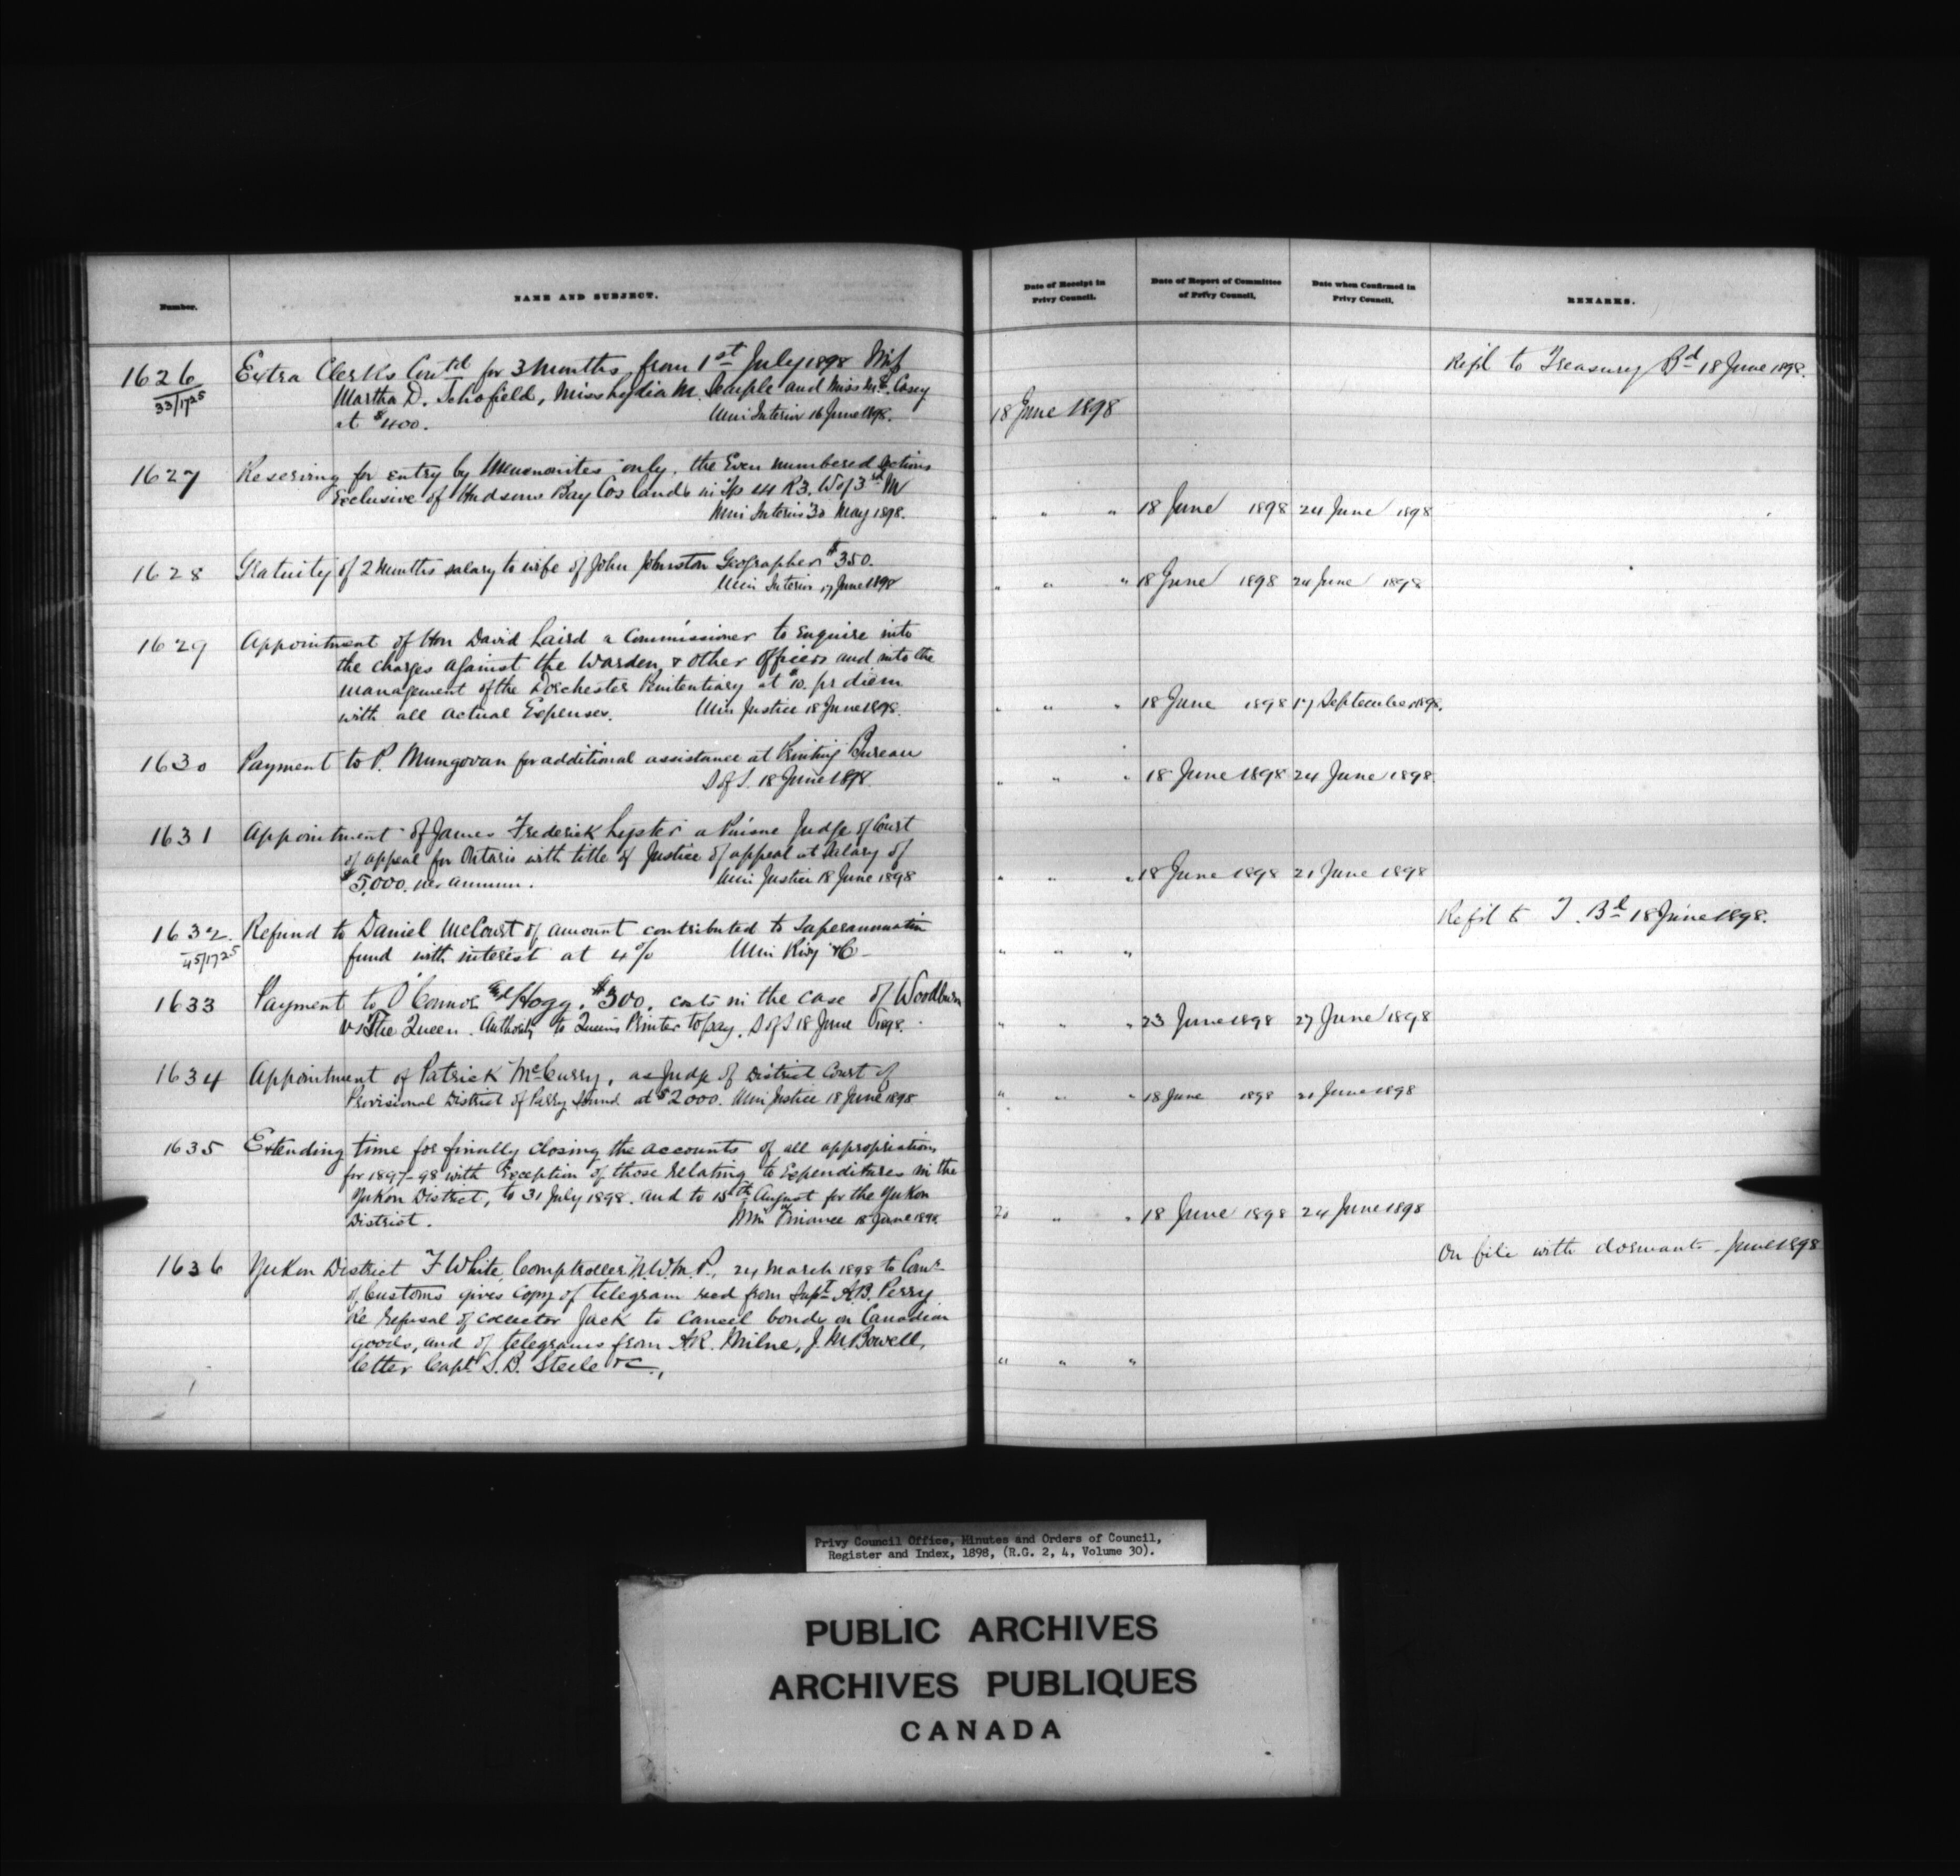 Number.
NAME AND SUBJECT.
Date of Receipt in
Privy Council.
Date of Report of Committee
of Privy Council.
Date when Confirmed in
Privy Council.
REMARKS.
1626
33/1725
Extra Clerks Contd for 3 Months from 1st July 1898 Miss
Martha D. Schofield, Miss Lydia M. Semple and Miss M. Casey
at $400.
Min Interior 16 June 1898.
18 June 1898
Refd to Treasury Bd 18 June 1898.
1627
Reserving for entry by Mennonites only. the Even numbered Sections
Exclusive of Hudsons Bay Cos lands in Tp 44 R3. W of 3rd M
Min Interior 30 May 1898.
" " " 18 June 1898 24 June 1898
1628
Gratuity of 2 Months salary to wife of John Johnston Geographer $350.
Min Interior 17 June 1898
" " " 18 June 1898 24 June 1898
1629
Appointment of Hon David Laird a Commissioner to Enquire into
the charges against the Warden, & other Officers and into the
management of the Dorchester Penitentiary at $10. pr diem
with all actual Expenses.
Min Justice 18 June 1898.
" " " 18 June 1898 17 September 1898.
1630
Payment to P. Mungovan for additional assistance at Printing Bureau
S of S. 18 June 1898.
" " " 18 June 1898 24 June 1898.
1631
Appointment of James Frederick Lyster a Puisne Judge of Court
of appeal for Ontario with title of Justice of appeal at Salary of
$5,000. per annum.
Min Justice 18 June 1898
" " " 18 June 1898 21 June 1898
1632.
45/1725
Refund to Daniel McCourt of amount contributed to Superannuation
fund with interest at 4%
Min Rlwy &C
" " "
Refd to T. Bd 18 June 1898.
1633
Payment to O'Connor and Hogg. $300. costs in the case of Woodburn
vs The Queen. Authority to Queens Printer to pay. S of S 18 June 1898.
" " " 23 June 1898 27 June 1898
1634
Appointment of Patrick McCurry, as Judge of District Court of
Provisional District of Parry Sound at $2000. Min Justice 18 June 1898
" " " 18 June 1898 21 June 1898
1635
Extending time for finally closing the accounts of all appropriations
for 1897-98 with Exception of those relating to Expenditures in the
Yukon District, to 31 July 1898. and to 15th August for the Yukon
District.
Min Finance 18 June 1898.
20 " " 18 June 1898 24 June 1898
1636
Yukon District F White, Comptroller N.W.M.P., 24 March 1898 to Comr
of Customs gives copy of telegram recd from Supt A.B. Perry
Re refusal of collector Jack to cancel bonds on Canadian
goods, and of telegrams from A.R. Milne, J.M. Bowell,
letter Capt S.B. Steele &c.,
" " "
On file with dormants - June 1898
Privy Council Office, Minutes and Orders of Council,
Register and Index, 1898, (R.G. 2, 4, Volume 30).
PUBLIC ARCHIVES
ARCHIVES PUBLIQUES
CANADA